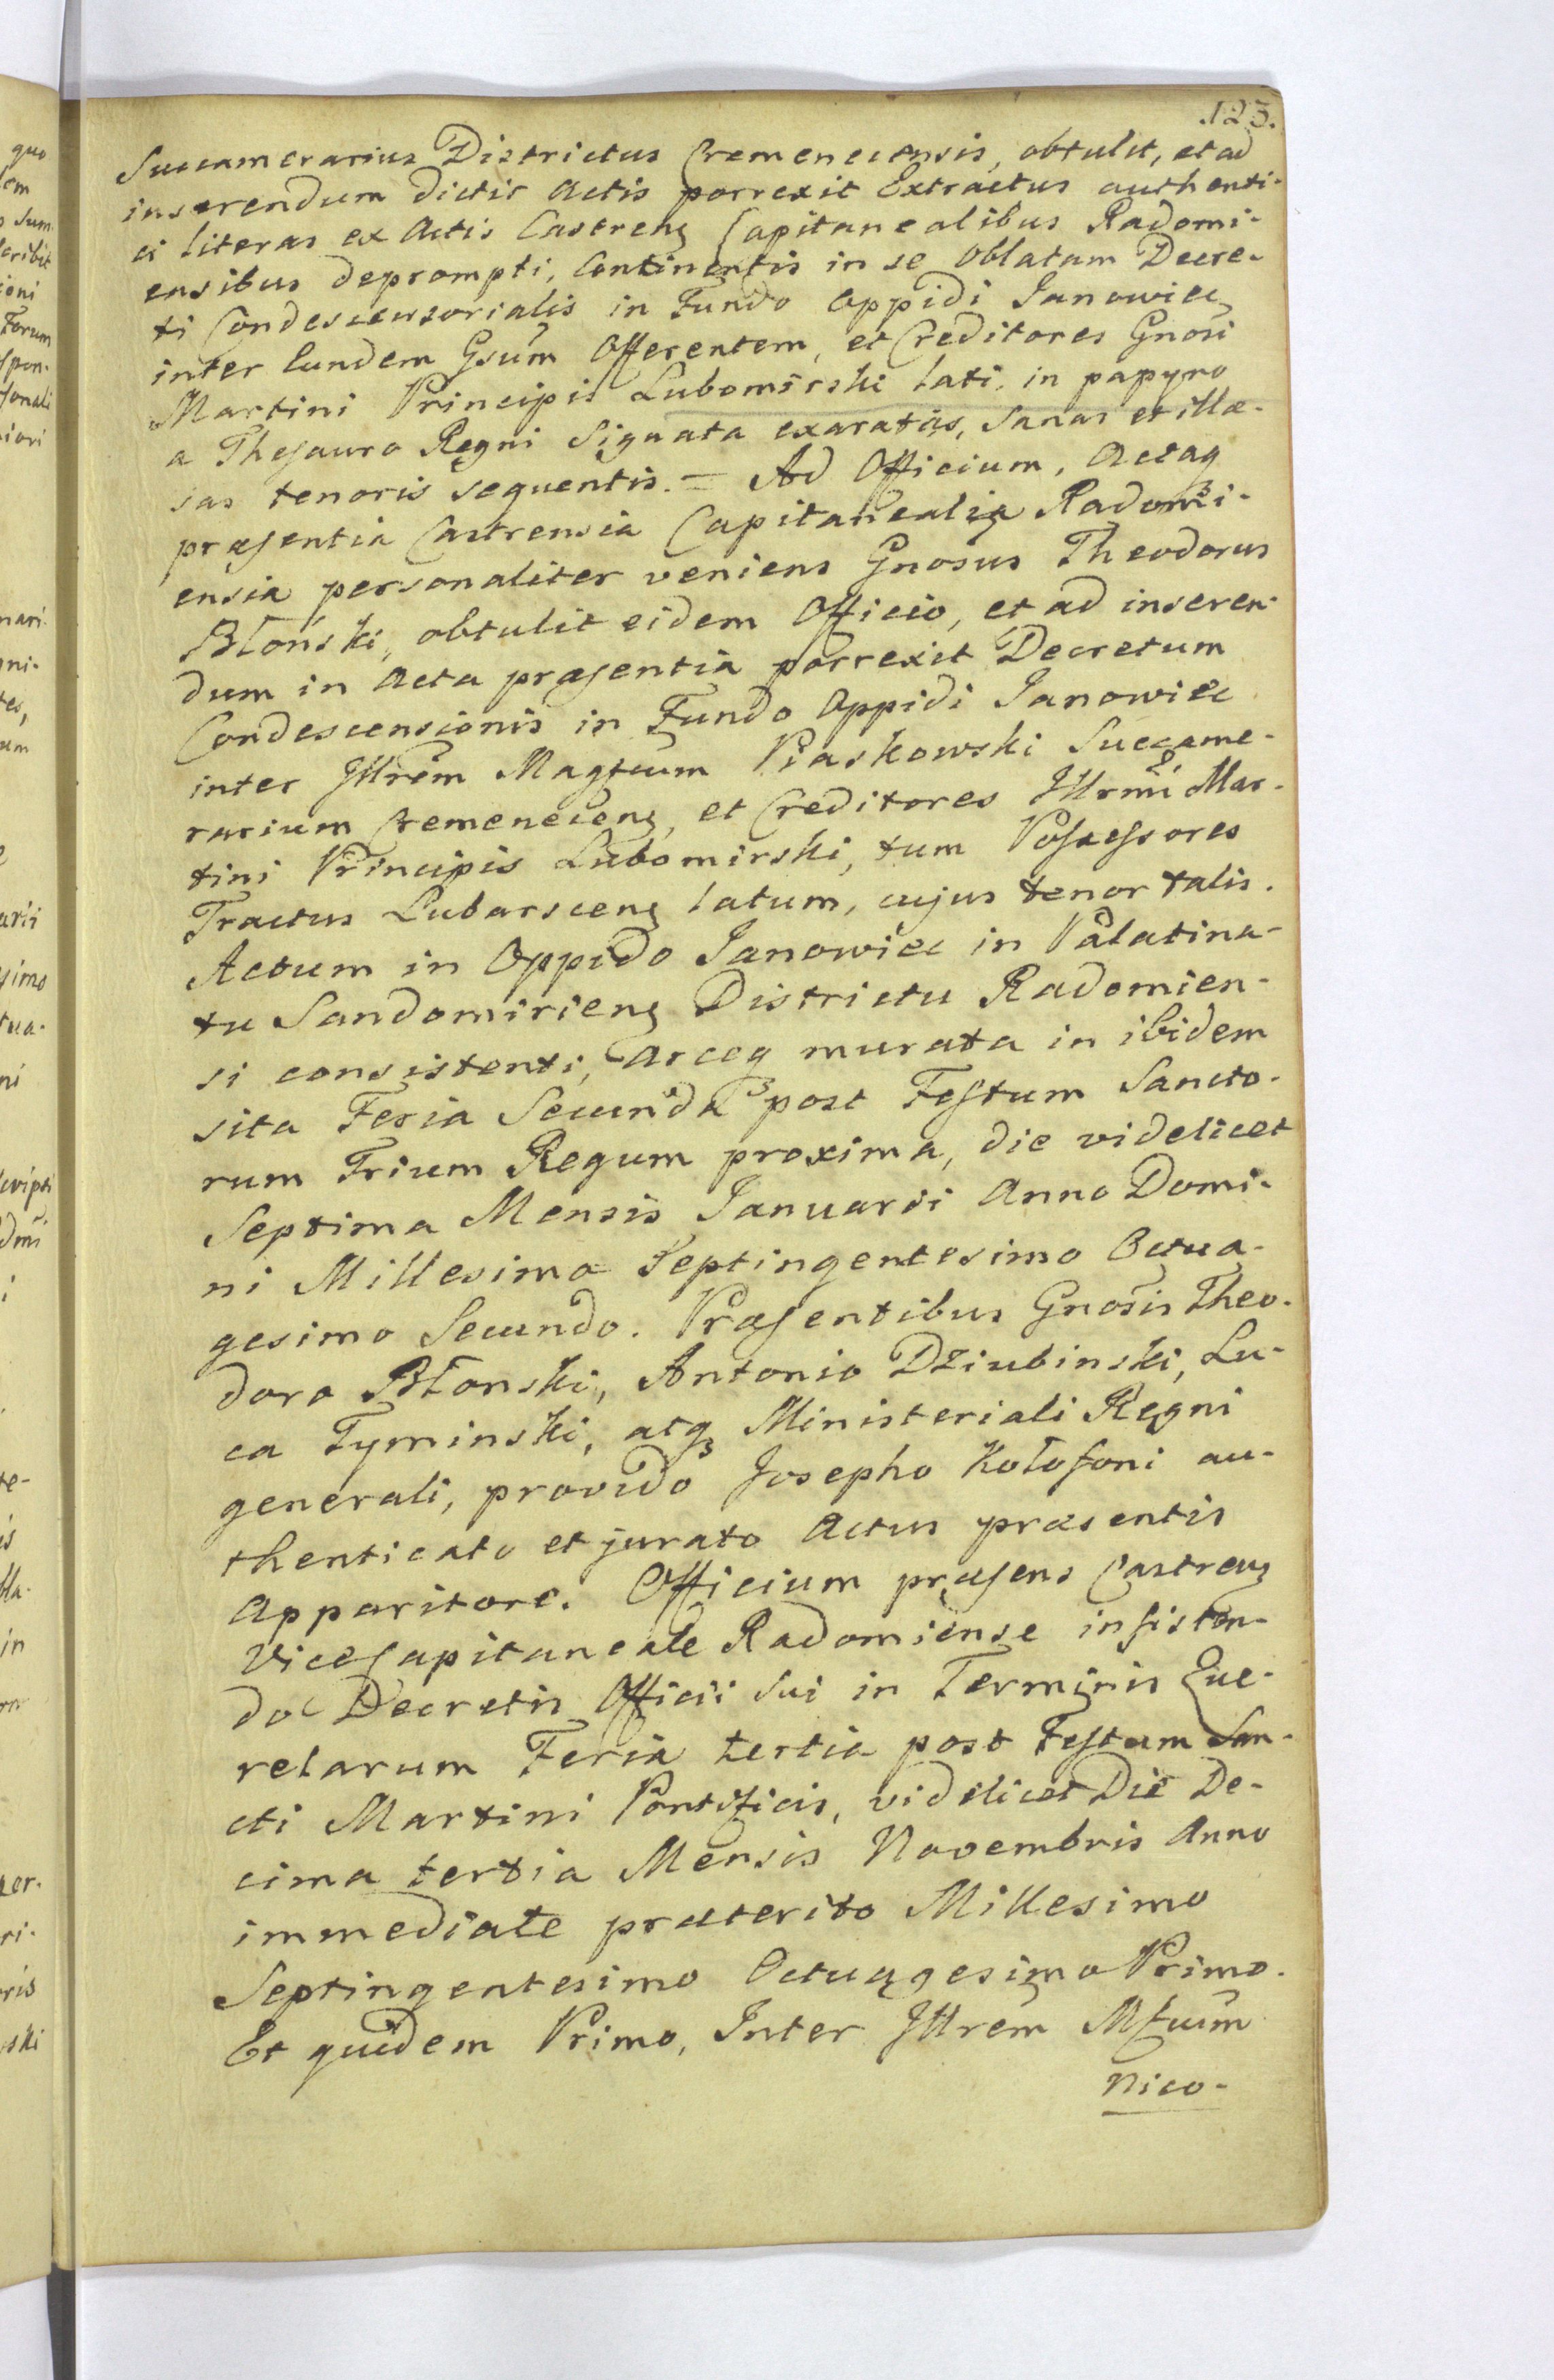 123.
Succamerarius Districtus Cremenecensis, obtulit, et ad
inserendum dictis Actis porrexit Extractus authenti-
ci literas ex Actis Castrens Capitanealibus Radomi-
ensibus deprompti, Continentis in se Oblatam Decre-
ti Condescensorialis in Fundo Oppidi Janowiec
inter Eundem Gsum Offerentem, et Creditores Gnosi
Martini Principis Lubomirski lati, in papyro
a Thesauro Regni Signata exaratas, Sanas et illæ-
sas tenoris sequentis. = Ad Officium, Actaq
præsentia Castrensia Capitanealia Radomi-
ensia personaliter veniens Gnosus Theodorus
Błoński, obtulit eidem Officio, et ad inseren-
dum in Acta præsentia porrexit Decretum
Condescensionis in Fundo Oppidi Janowiec
inter Jllrem Magficum Piaskowski Succame-
rarium Cremenecens, et Creditores Jllrmi Mar-
tini Principis Lubomirski, tum Possessores
Tractus Lubarscens latum, cujus tenor talis.
Actum in Oppido Janowiec in Palatina-
tu Sandomiriens Districtu Radomien-
si consistenti, Arceq murata in ibidem
sita Feria Secunda post Festum Sancto-
rum Trium Regum proxima, die videlicet
Septima Mensis Januarii Anno Domi-
ni Millesimo Septingentesimo Octua-
gesimo Secundo. Præsentibus Gnosis Theo-
doro Błonski, Antonio Dziubinski, Lu-
ca Tyminski, atq Ministeriali Regni
generali, provido Josepho Kołofoni au-
thenticato et jurato Actus præsentis
Apparitore. Officium præsens Castrens
ViceCapitaneale Radomiense insisten-
do Decretis Officii Sui in Terminis Que-
relarum Feria tertia post Festum San-
cti Martini Pontificis, videlicet Die De-
cima tertia Mensis Novembris Anno
immediate præterito Millesimo
Septingentesimo Octuagesimo Primo.
Et quidem Primo, Inter Jllrem Mfcum
Nico-